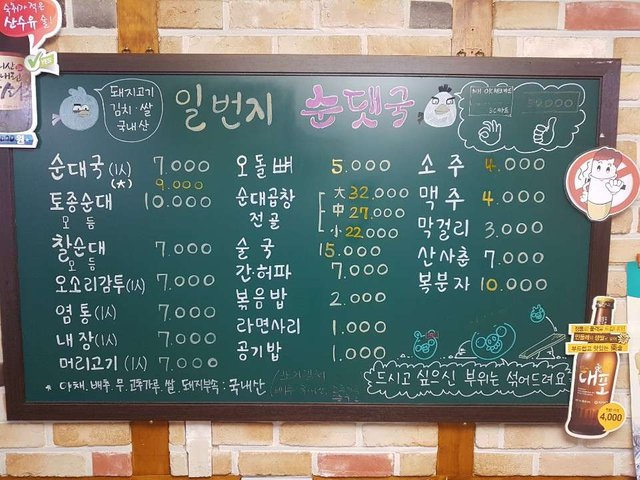 숙취가 적은
산수유 술!
YES!
돼지고기
김치·쌀
국내산
일번지 순댓국
50,000
순대국(1人) 7.000
(大) 9.000
토종순대 10.000
모듬
찰순대 7.000
모듬
오소리감투(1人) 7.000
염통(1人) 7.000
내장(1人) 7.000
머리고기(1人) 7.000
오돌뼈 5.000
순대곱창 大 32.000
전골 中 27.000
小 22.000
술국 15.000
간허파 7.000
볶음밥 2.000
라면사리 1.000
공기밥 1.000
소주 4.000
맥주 4.000
막걸리 3.000
산사춘 7.000
복분자 10.000
드시고 싶으신 부위는 섞어드려요
* 다대. 배추. 무. 고춧가루. 쌀. 돼지부속 : 국내산
부드럽고 맛있는
대포
4,000